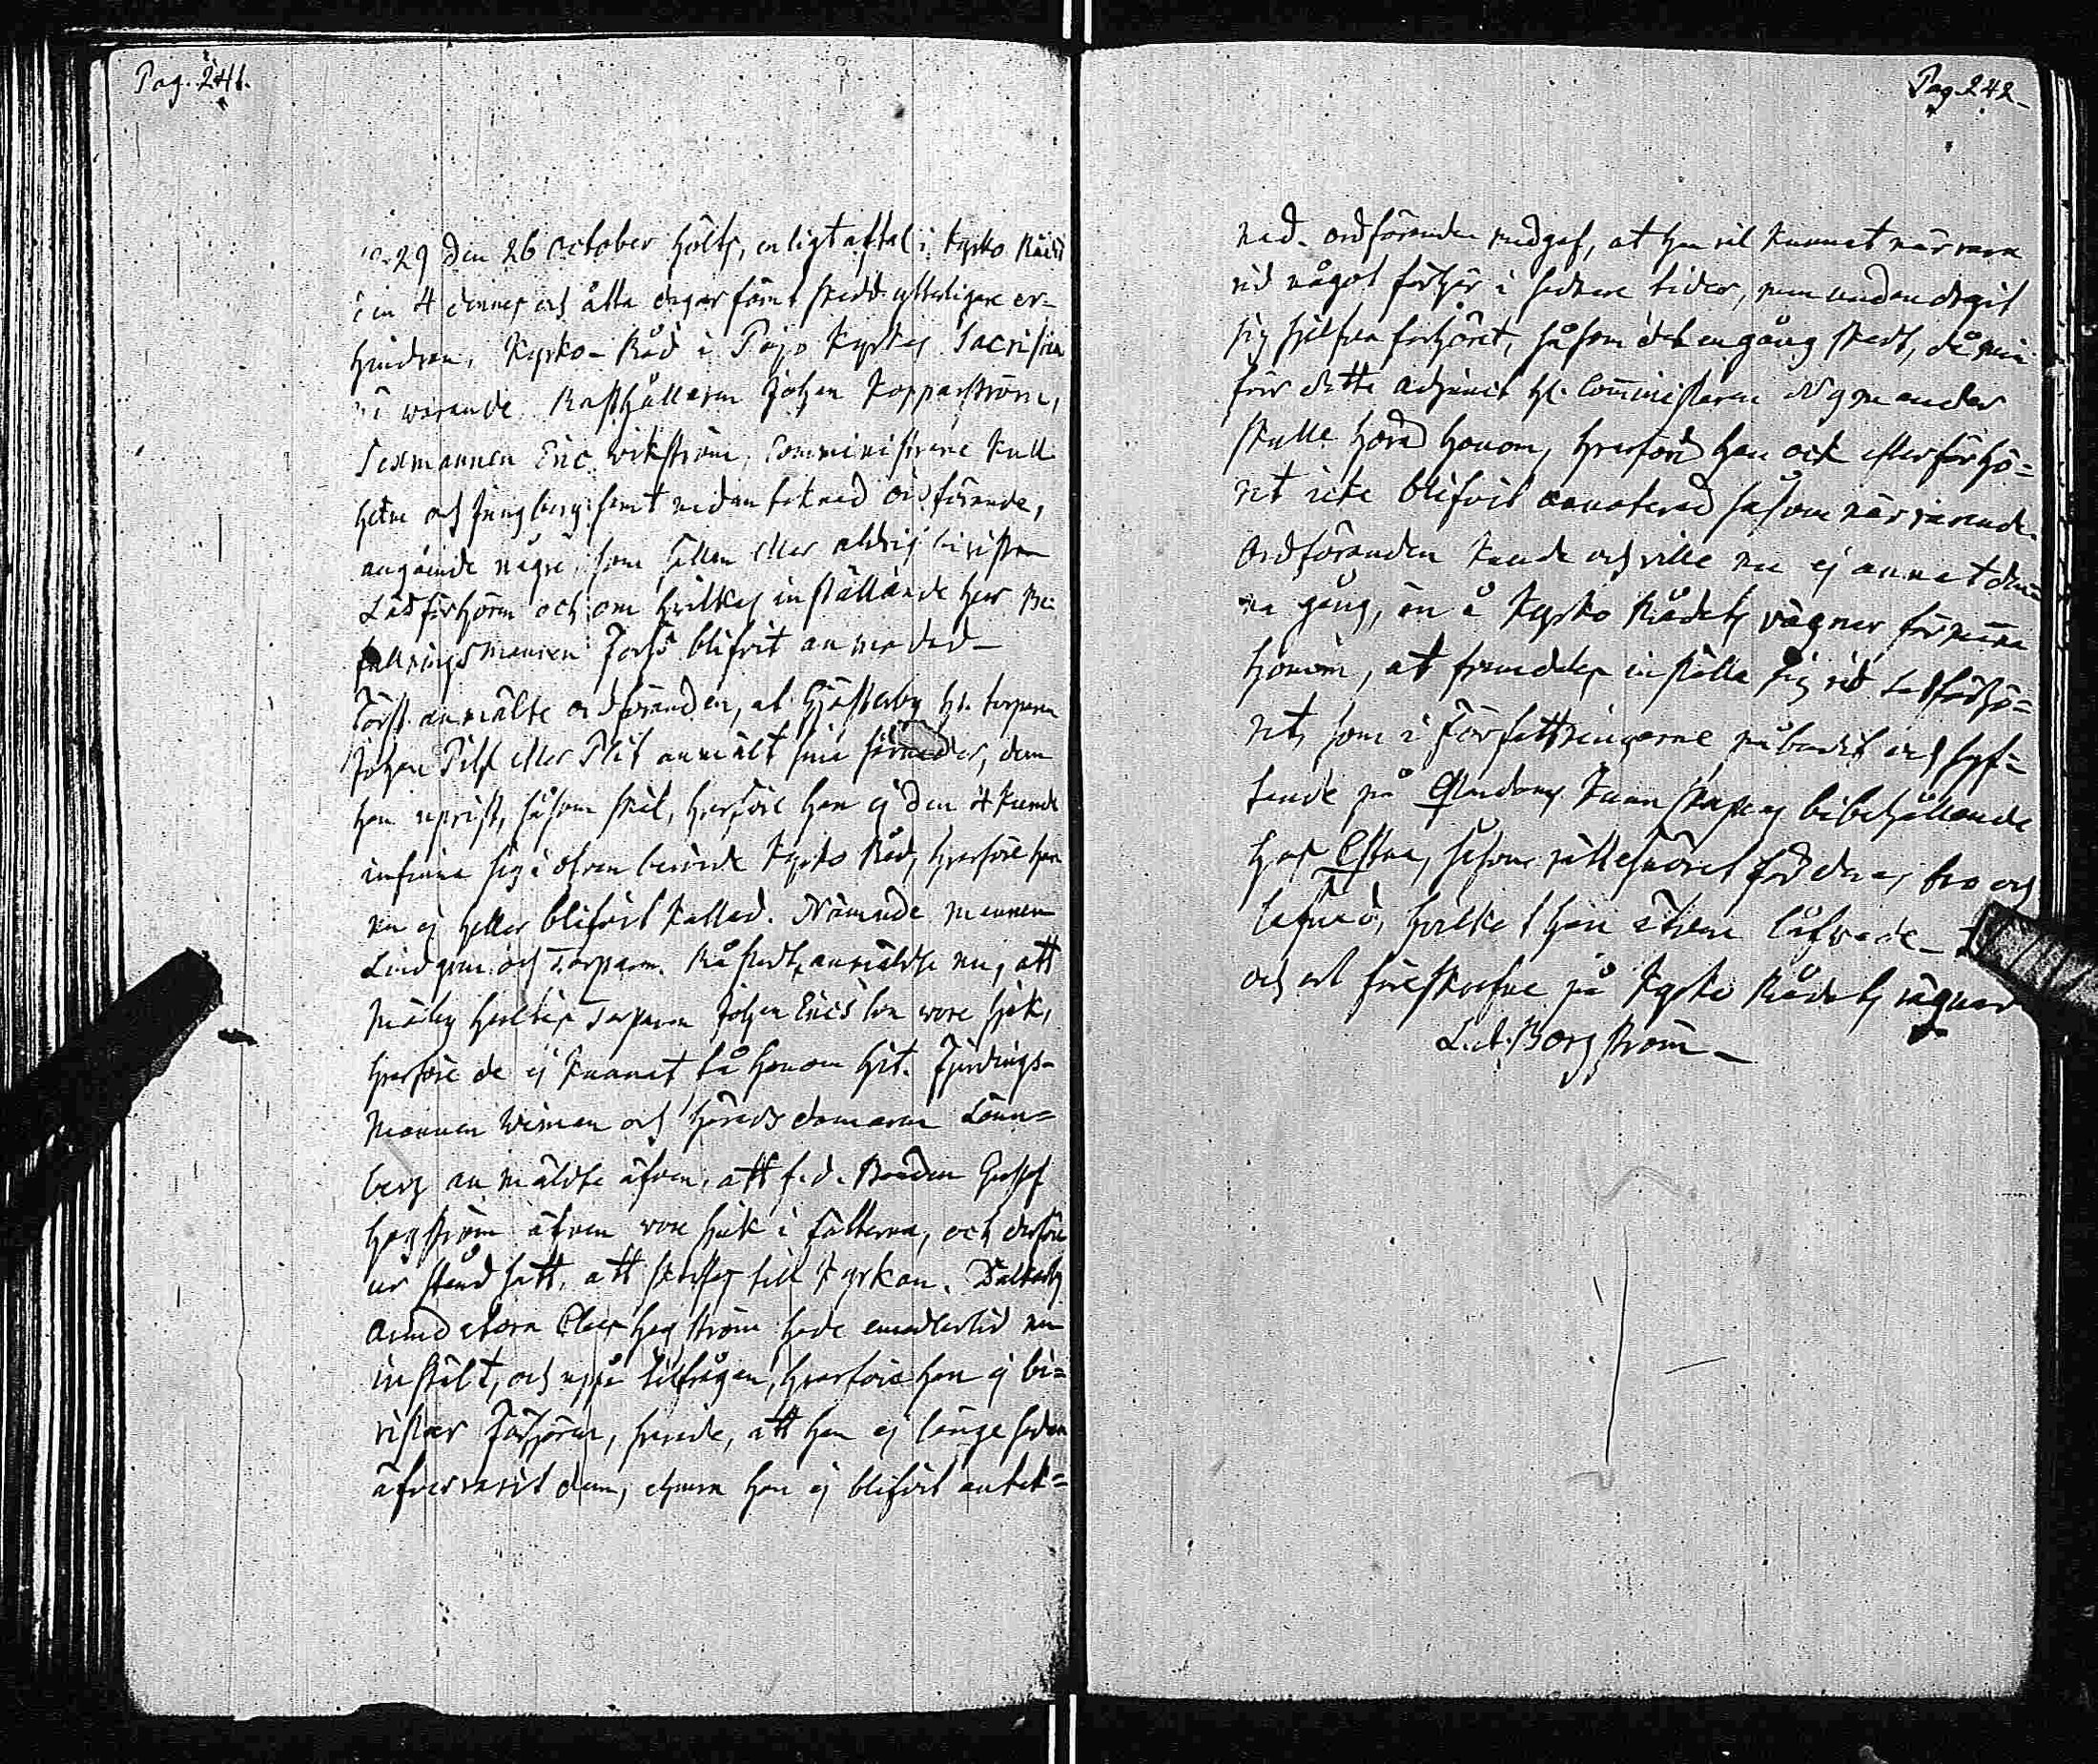 Pag. 241.
1829 den 26 October hölts, enligt aftal i Kyrko Rådet
den 4 dennes och åtta dagar förut skedd ytterligare er-
hindran, Kyrko-Råd i Pojo Kyrkas Sacristia
när warande Rusthållaren Johan Kopparström,
Sexmannen Eric Wikström, Comministrarne Kull
helm och Ljungberg samt nedan teknad ordförande,
angående några, som sällan eller aldrig bivistan
Läsförhören och om hvilkas inställande har Be-
fallningsmannen Forss blifvit anmodad –
Först anmälte ordföranden, at Gjästerby hs. torparen
Johan Pilt eller Plit anmält sina förmoder, dem
han uprist, såsom skäl, hvarföre han ej den 4 kunde
infinna sig i ofvan berörde Kyrko Råd, hvarföre han
nu ej heller blifvit kallad. Nämnde mannen
Lindgren och Torparen anmäldte nu, att
Torparen Johan Ericsson wore sjuk,
hvarföre de ej kunnat få honom hit. Fjerdings-
mannen Wiman och Häradsdomaren Lönn-
berg anmäldte äfven, att f.d. Bonden Gustaf
Hagström äfven vore sjuk i fötterna, och derföre
ur stånd satt, att skaffas till Kyrkan. Dalkarby
Arrendatorn Claes Hagström hade emedlertid nu
instält, och uppå tilfrågan, hvarföre han ej bi-
vistar Förhören, svarade, att han ej länge sedan
äfvervarit dem, ehuru han ej blifvit antek-
Pag. 242
nad. ordföranden medgaf, at han väl kunnat närvara
vid något förhör i sednare tider, men undandragit
sig sjelfva förhöret, såsom det en gång skedt, då min
för detta Adjunct hr. Comministeren Nymander
skulle hörd honom, hvarföre han ock efter förhö-
ret icke blifvit annoterad såsom närvarande.
Ordföranden kunde och ville nu ej annat den-
na gång, än å Kyrko Rådets vägnar förmana
honom, at framdeles inställa sig vid Läsförhö-
ret, som i Författningarne påbudit och syf-
tande på Kunskapens bibehållande
hos såsom rättesnöret för deras tro och
lefnad, hvilket han äfven låfvade –
och at föreskrefne på Kyrko Rådets vägnar
L.A. Borgström –